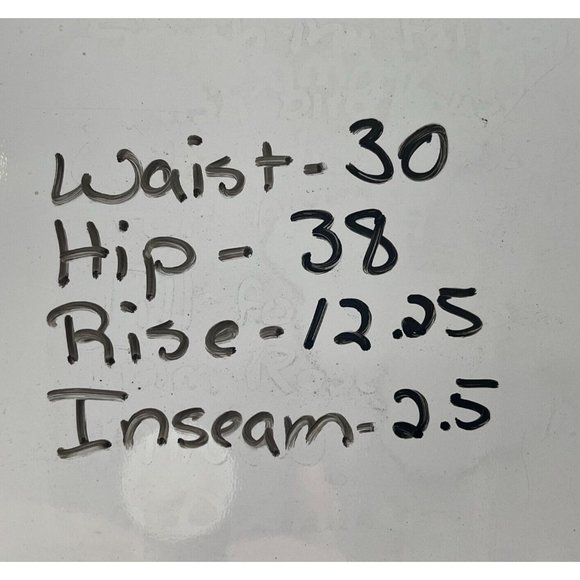 Waist - 30
Hip - 38
Rise - 12.25
Inseam - 2.5